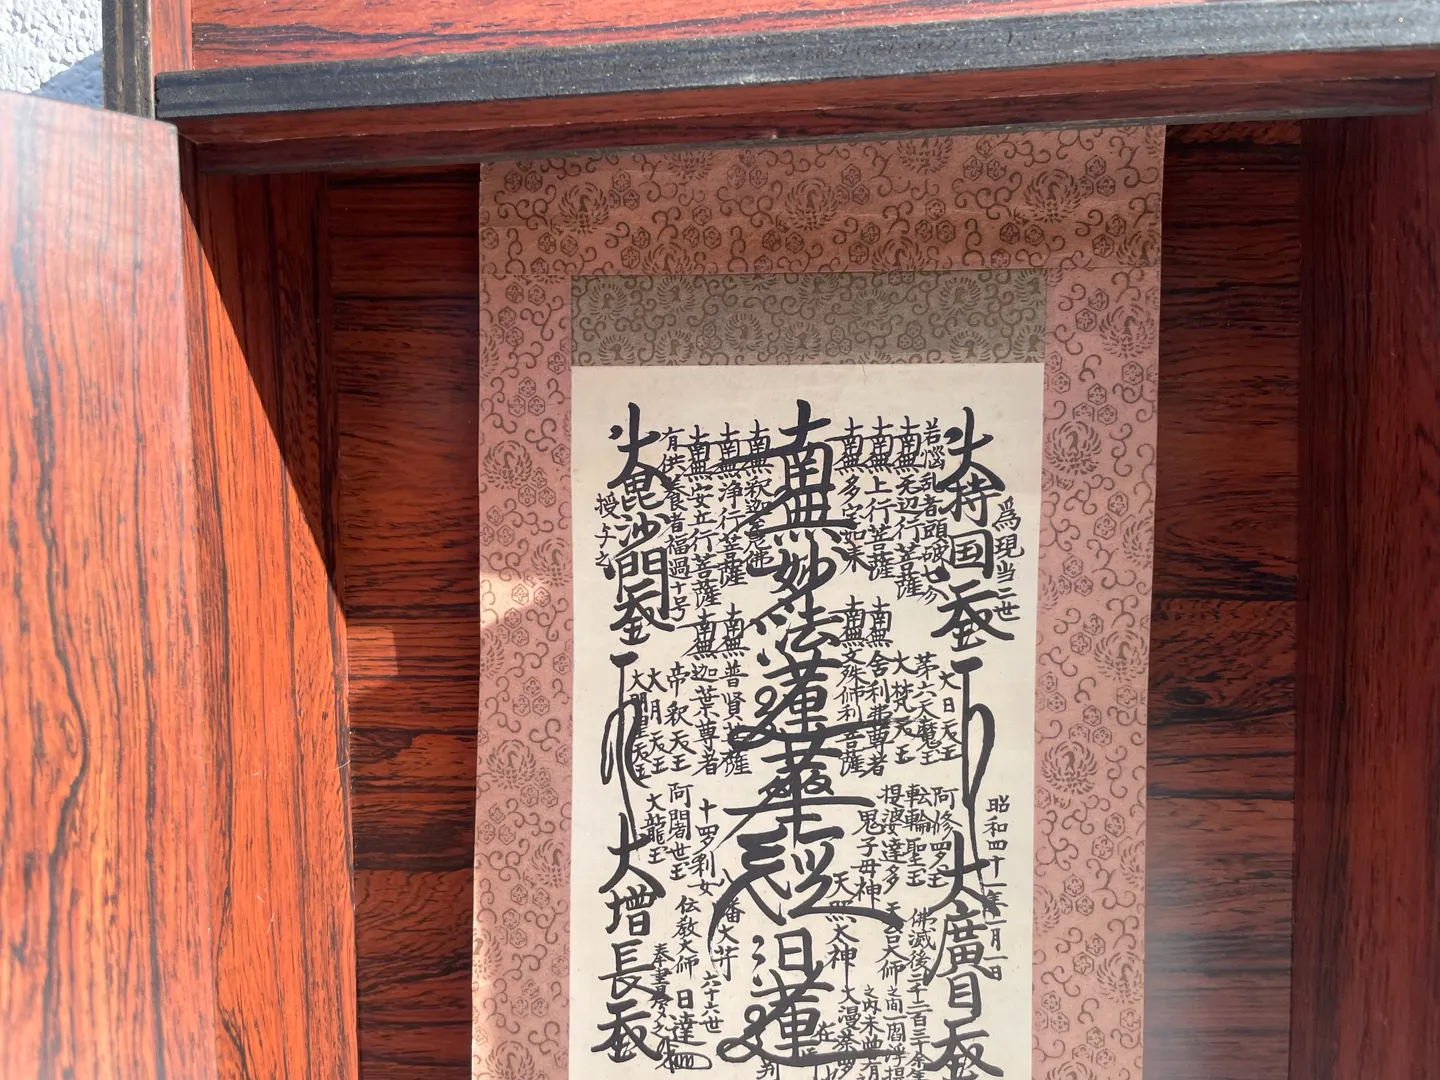 大持国天王
為現当二世
若悩乱者頭破七分
南無无辺行菩薩
南無上行菩薩
南無多宝如来
南無妙法蓮華経
日蓮
南無釈迦牟尼佛
南無浄行菩薩
南無安立行菩薩
有供養者福過十号
大毘沙門天王
授与之
大日天王
第六天魔王
大梵天王
南無舎利弗尊者
南無文殊師利菩薩
南無普賢菩薩
南無迦葉尊者
帝釈天王
大月天王
大明星天王
昭和四十一年一月一日
大廣目天王
阿修羅王
転輪聖王
提婆達多
鬼子母神
天照大神
天台大師
佛滅後二千二百三十余年
之間一閻浮提
之内未曽有
大漫荼羅
在
八幡大菩
十四羅刹女
阿闍世王
大龍王
伝教大師
六十六世
日達
奉書写之
判
大増長天王